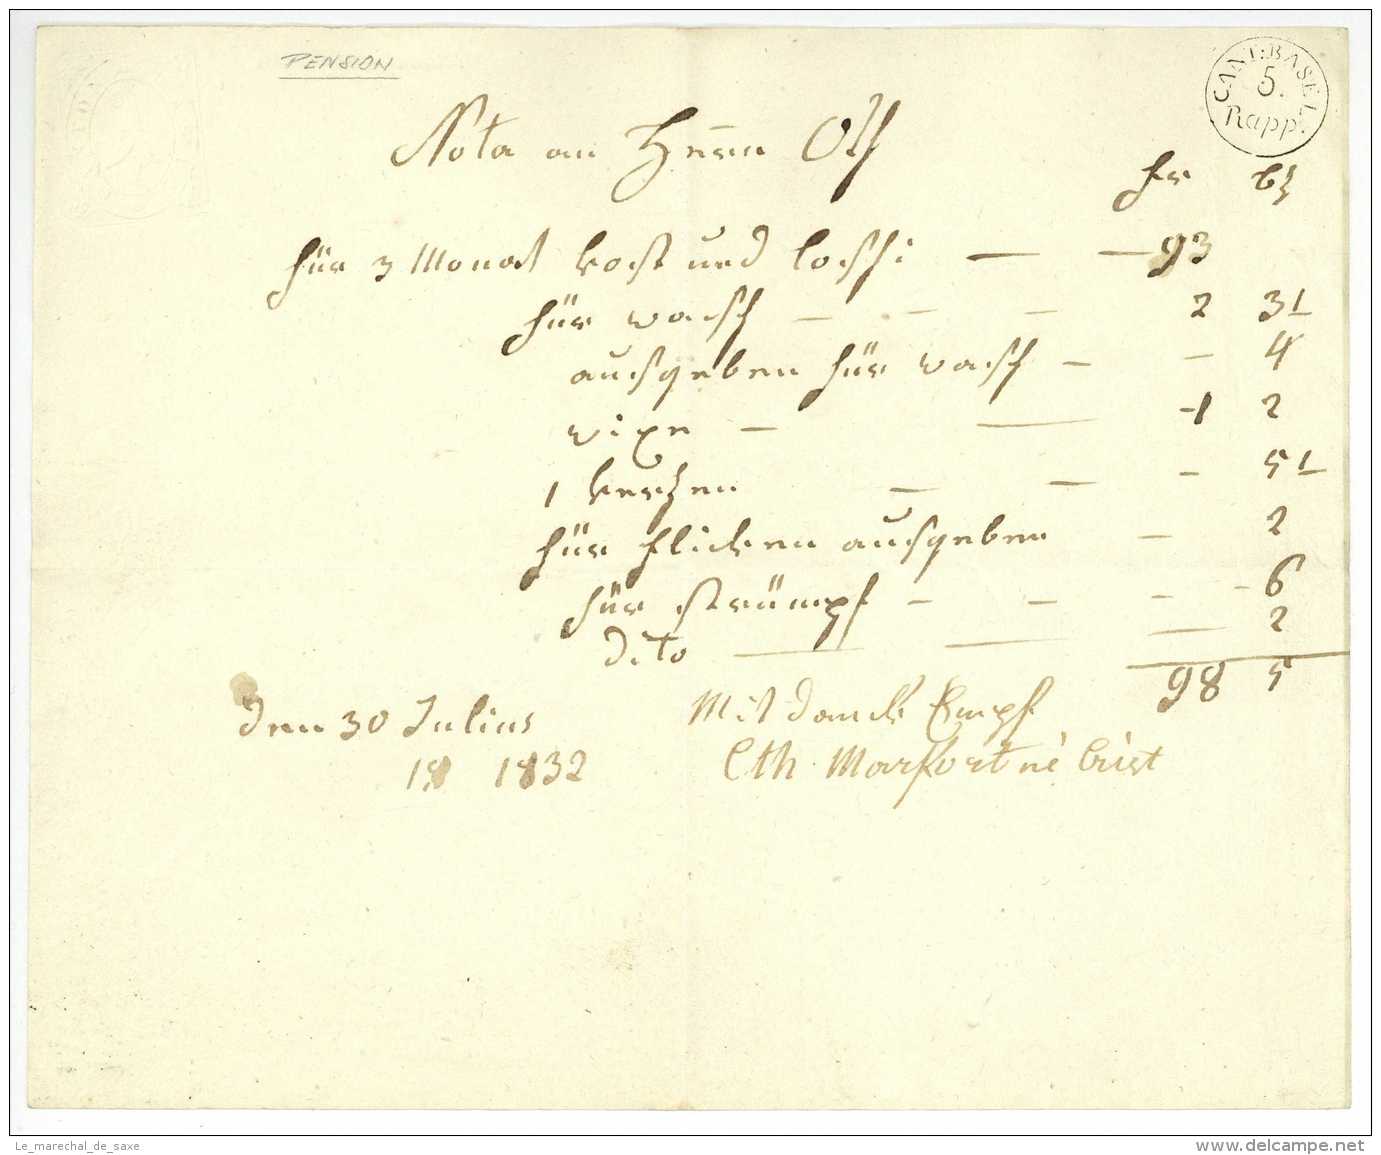 PENSION
CANT: BASEL
5.
Rapp:
Nota an Herrn
fr bz
für 3 Monat kost und loschi — — 93
für wasch — — — 2 3 1
ausgeben für wasch — — 4
wixe — — -1 2
1 kerzen — — — 5 1
für flicken ausgeben — 2
für strümpf — — — - 6
dito — — — 2
98 5
den 30 Julius
18 1832
Mit danck Empf
Eth. Marfort né
Le_marechal_de_saxe
www.delcampe.net